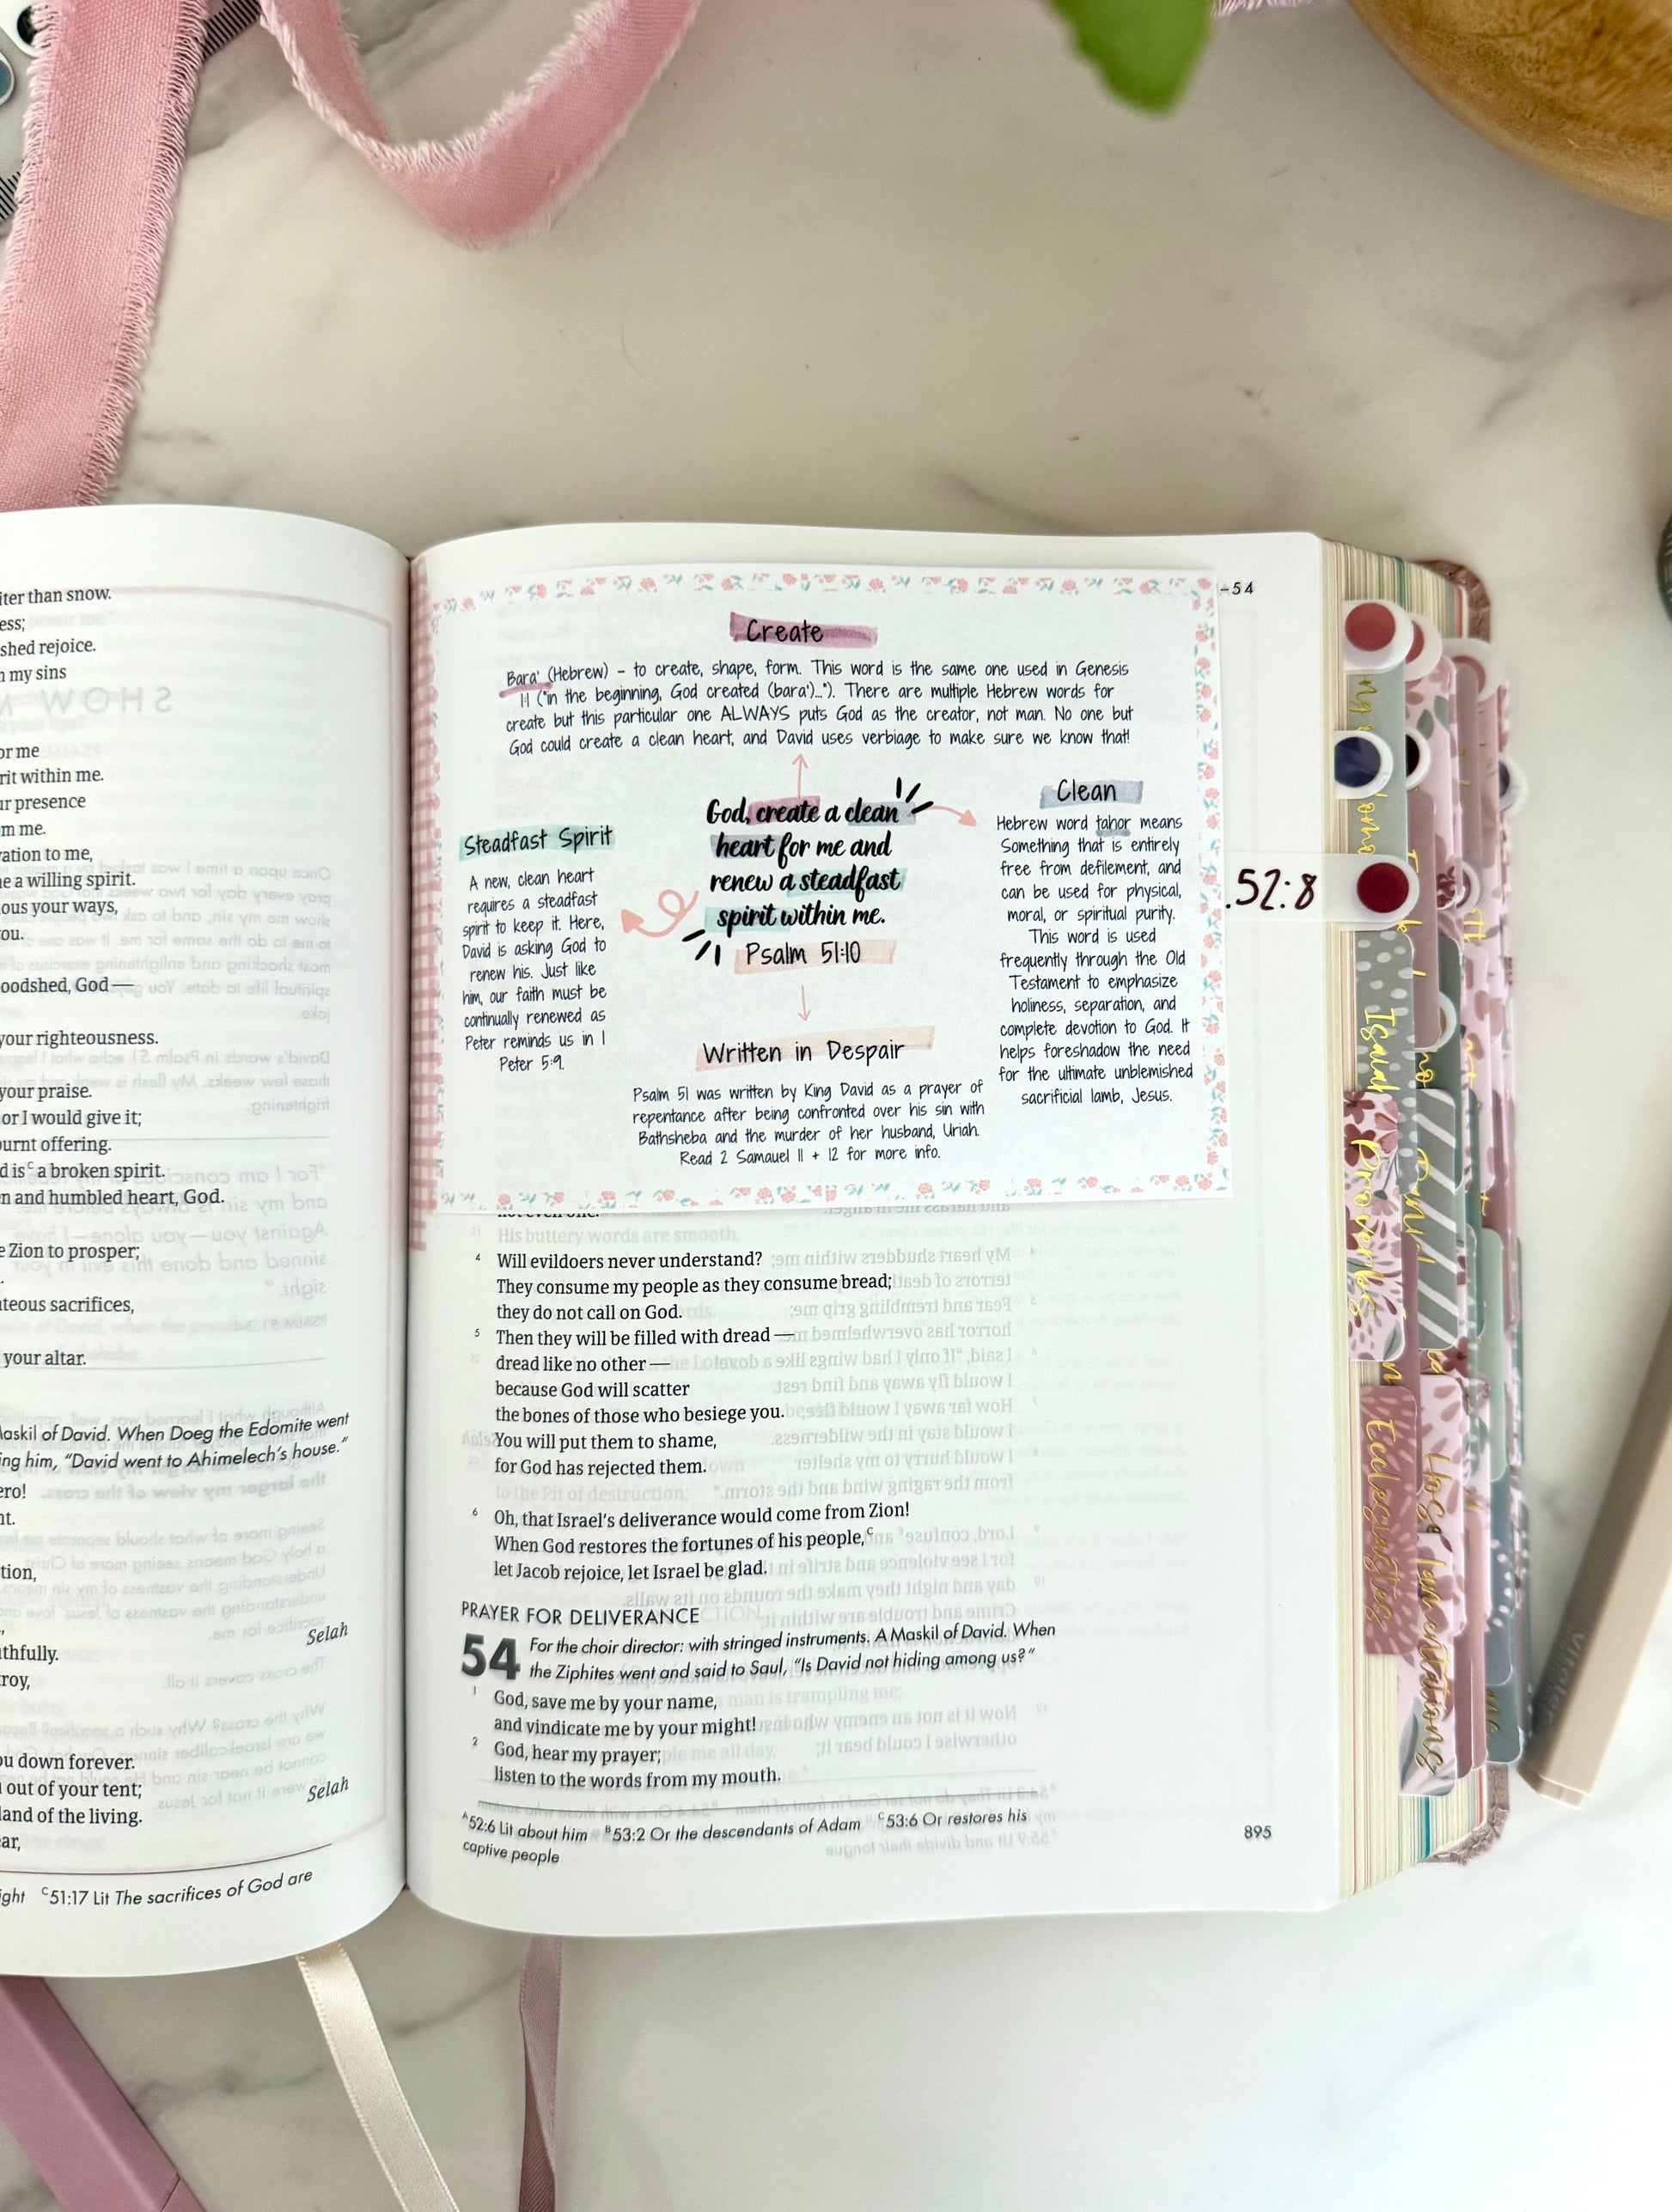 iter than snow.
ess;
shed rejoice.
n my sins
or me
rit within me.
ur presence
m me.
vation to me,
e a willing spirit.
ous your ways,
ou.
oodshed, God —
your righteousness.
your praise.
or I would give it;
urnt offering.
d is c a broken spirit.
n and humbled heart, God.
e Zion to prosper;
teous sacrifices,
your altar.
Maskil of David. When Doeg the Edomite went
ing him, “David went to Ahimelech’s house.”
ero!
nt.
tion,
Selah
thfully.
roy,
ou down forever.
out of your tent;
Selah
land of the living.
ear,
ight C51:17 Lit The sacrifices of God are
-54
Create
Bara' (Hebrew) - to create, shape, form. This word is the same one used in Genesis
1:1 ("in the beginning, God created (bara')..."). There are multiple Hebrew words for
create but this particular one ALWAYS puts God as the creator, not man. No one but
God could create a clean heart, and David uses verbiage to make sure we know that!
God, create a clean
heart for me and
renew a steadfast
spirit within me.
Psalm 51:10
Steadfast Spirit
A new, clean heart
requires a steadfast
spirit to keep it. Here,
David is asking God to
renew his. Just like
him, our faith must be
continually renewed as
Peter reminds us in 1
Peter 5:9.
Clean
Hebrew word tahor means
Something that is entirely
free from defilement, and
can be used for physical,
moral, or spiritual purity.
This word is used
frequently through the Old
Testament to emphasize
holiness, separation, and
complete devotion to God. It
helps foreshadow the need
for the ultimate unblemished
sacrificial lamb, Jesus.
Written in Despair
Psalm 51 was written by King David as a prayer of
repentance after being confronted over his sin with
Bathsheba and the murder of her husband, Uriah.
Read 2 Samauel 11 + 12 for more info.
.52:8
not even one.
4 Will evildoers never understand?
They consume my people as they consume bread;
they do not call on God.
5 Then they will be filled with dread —
dread like no other —
because God will scatter
the bones of those who besiege you.
You will put them to shame,
for God has rejected them.
6 Oh, that Israel’s deliverance would come from Zion!
When God restores the fortunes of his people,C
let Jacob rejoice, let Israel be glad.
PRAYER FOR DELIVERANCE
54 For the choir director: with stringed instruments. A Maskil of David. When
the Ziphites went and said to Saul, “Is David not hiding among us?”
1 God, save me by your name,
and vindicate me by your might!
2 God, hear my prayer;
listen to the words from my mouth.
A52:6 Lit about him B53:2 Or the descendants of Adam C53:6 Or restores his
captive people
895
Isaiah
Proverbs
Ecclesiastes
Hosea
Lamentations